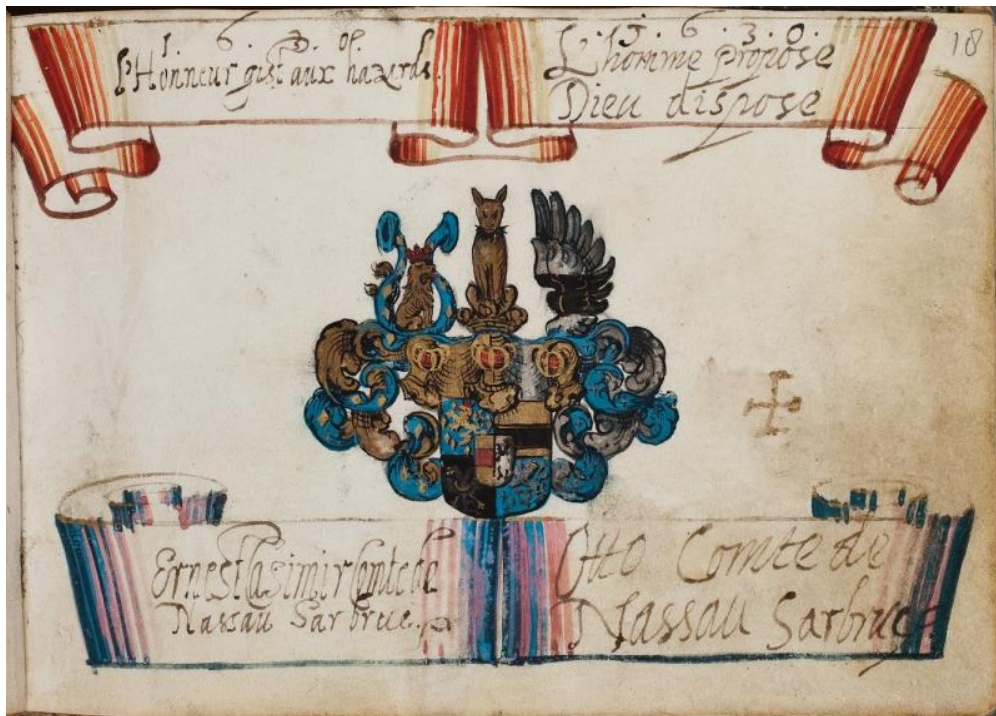 1. 6. 3. 0.
l'Honneur gist aux hazards.
.1.5.6.3.0.
L'homme propose
Dieu dispose
18
Ernest Casimir Comte de
Nassau Sarbruc.
Otto Comte de
Nassau Sarbruck